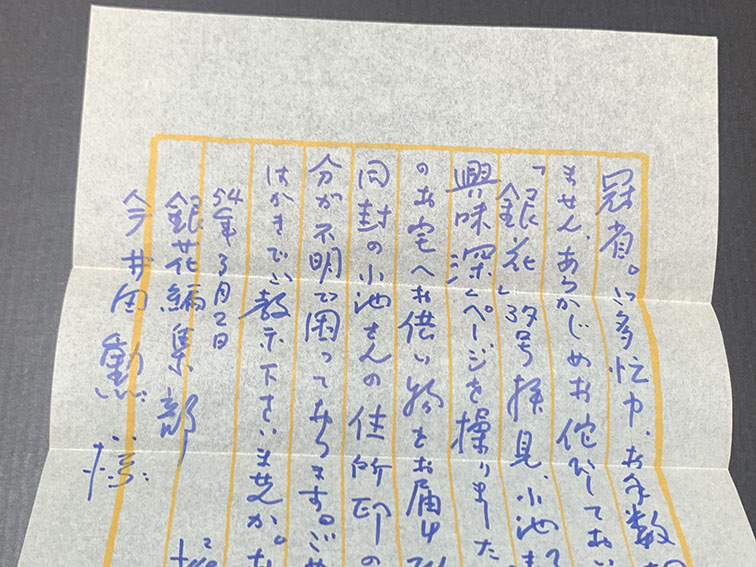 冠省。ご多忙中、お手数
ません、あらかじめお侘びしておい
「銀花」37号拝見、小池
興味深くページを操りました
のお宅へお供い物をお届け
同封の小池さんの住所印の
分が不明で困っております。ご
はかきでご教示下さいませんか。
54年3月2日
銀花編集部
今井田勲様